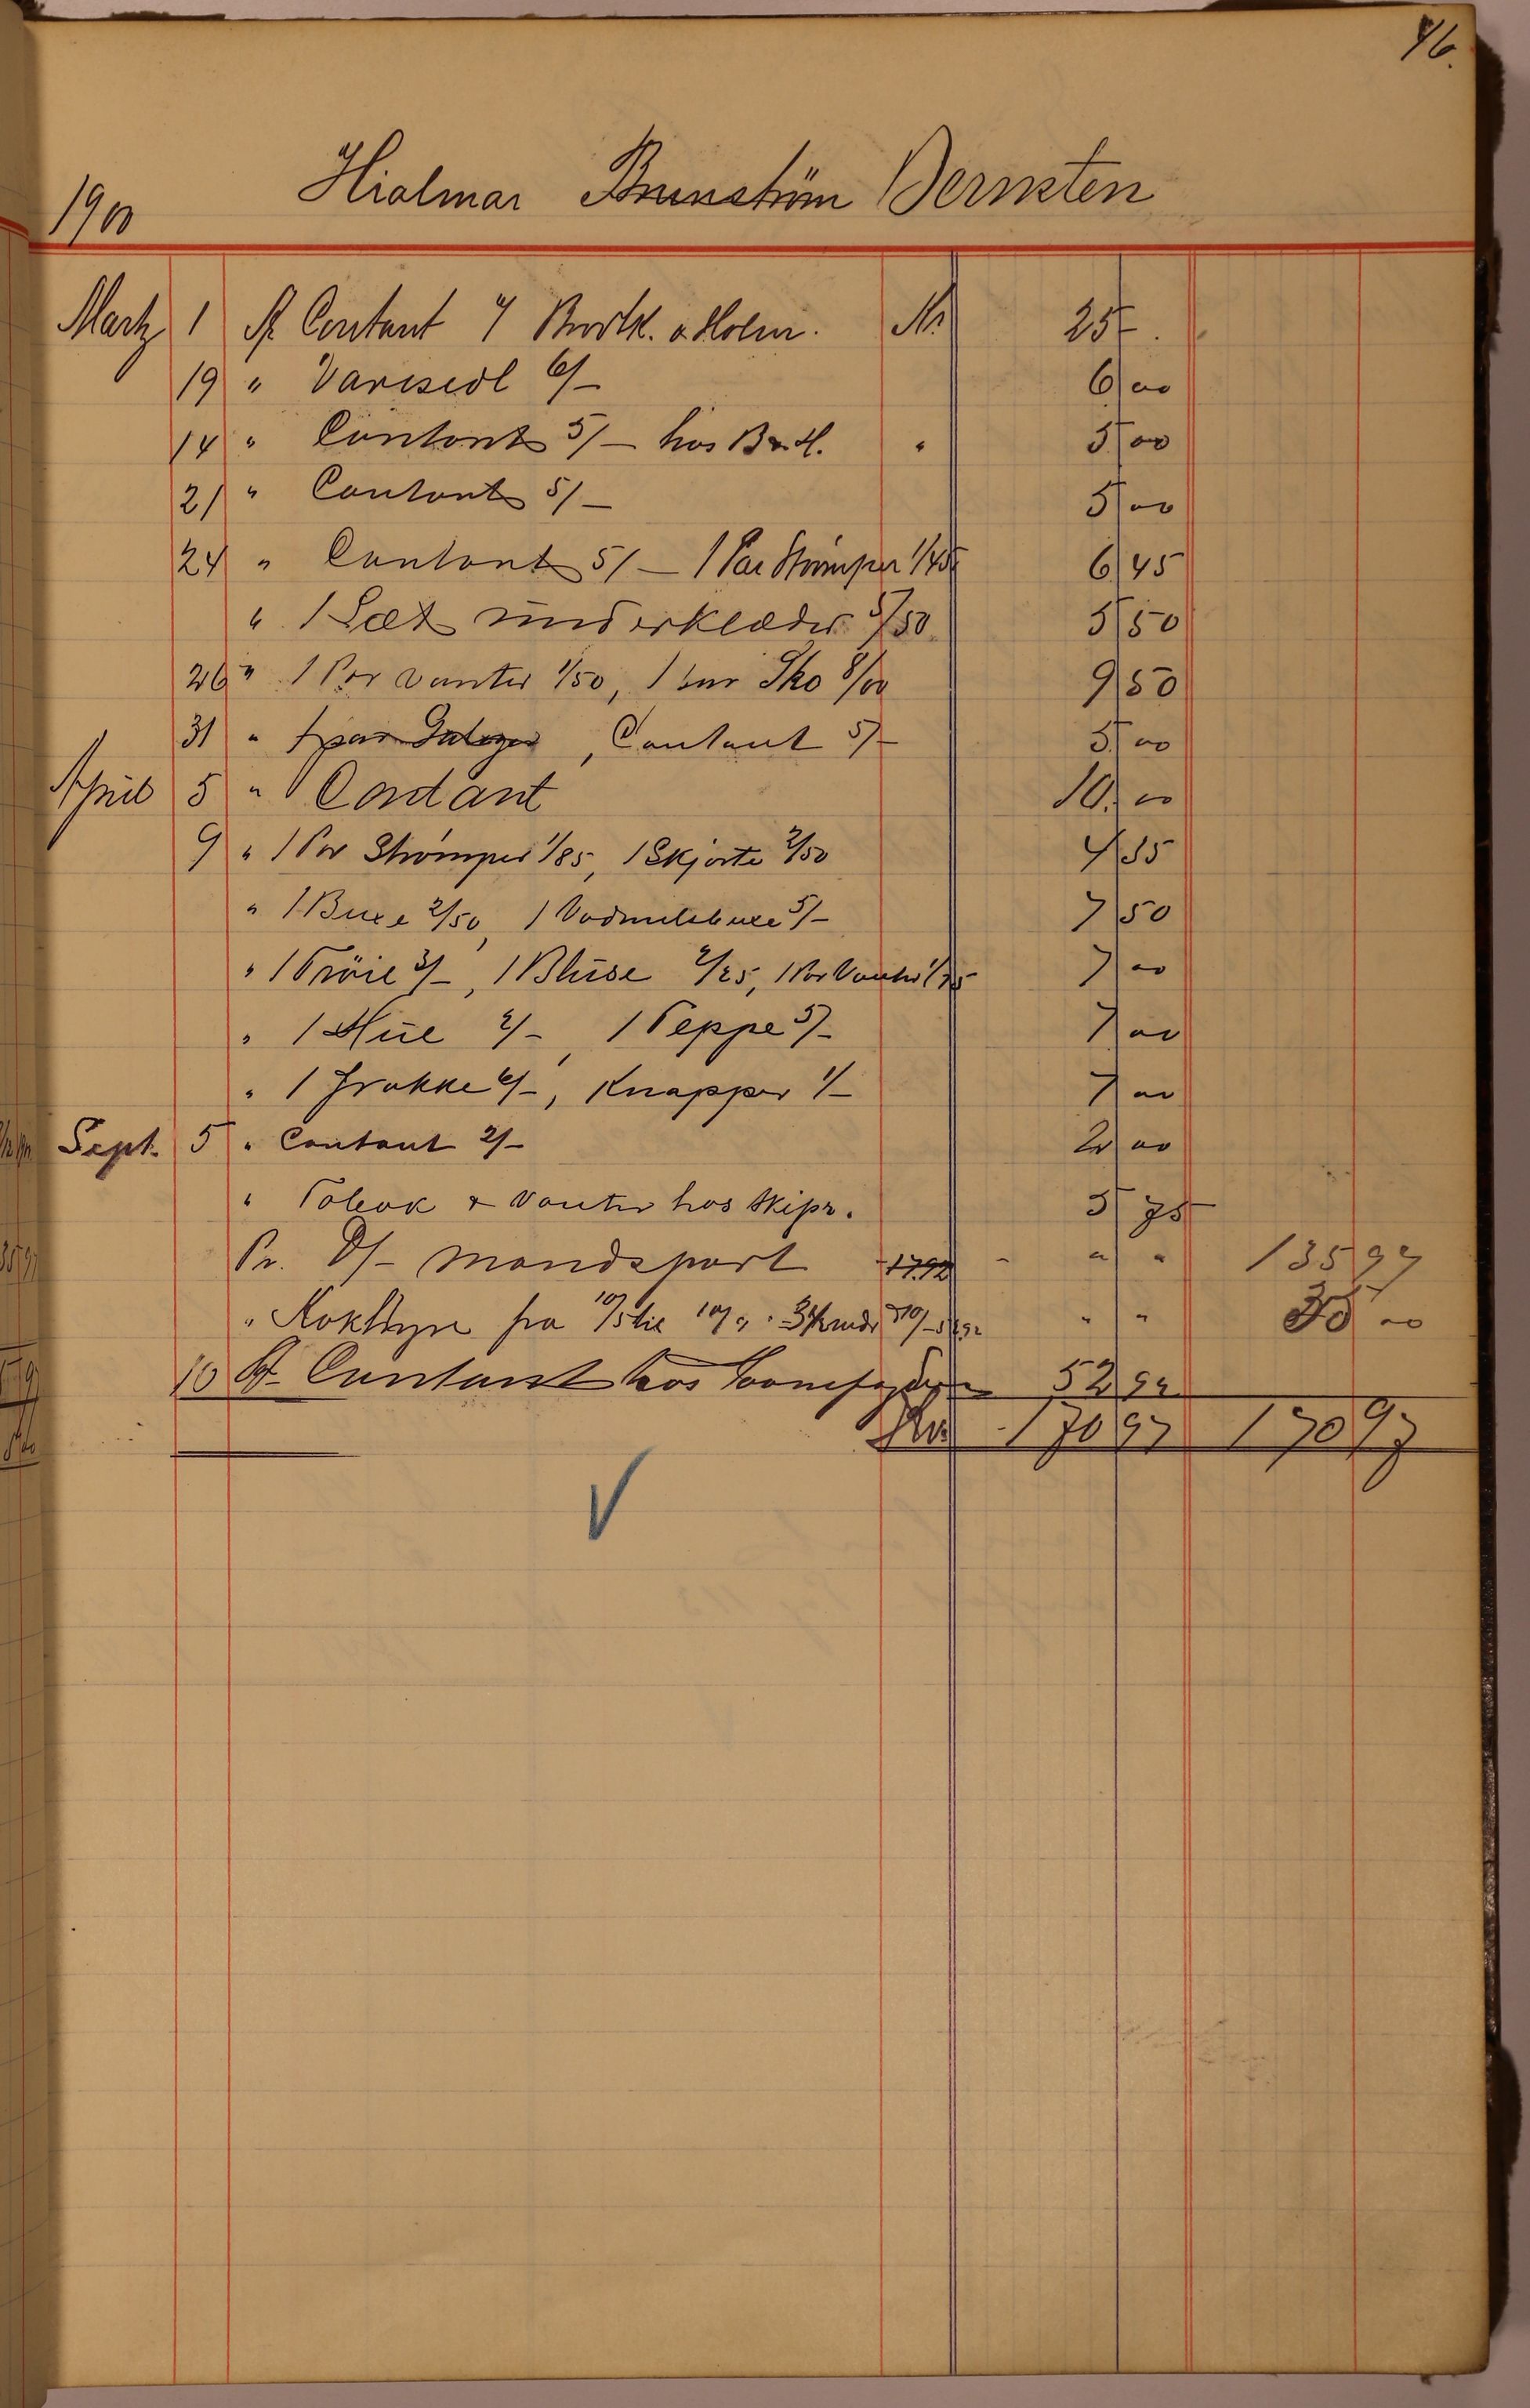 46.
1900 Hialmar Brunström Bernsten
Marts 1 At Contant 4/ Brodtk. & Holm. Kr. 25 -.
19 " Varesedl 6/- 6 00
14 " Contant 5/- hos B & H. " 5 00
21 " Contant 5/- 5 00
24 " Contant 5/- 1 Par Strömper 1/45 6 45
" 1 Sæt underklæder 5/50 5 50
26 " 1 Par vanter 1/50, 1 par Sko 8/00 9 50
31 " 1 par , Contant 5/- 5 00
April 5 " Contant 10. 00
9 " 1 Par Strömper 1/85, 1 Skjorte 2/50 4 35
" 1 Buxe 2/50, 1 Vadmelsbuxe 5/- 7 50
" 1 Tröie 3/-, 1 Bluse 2/25, 1 Par Vanter 1/75 7 00
" 1 Hue 2/-, 1 Teppe 5/- 7 00
" 1 Frakke 6/-, Knapper 1/- 7 00
Sept. 5 " Contant 2/- 2 00
" Tobak & Vanter hos Skipr. 5 75
Pr. D/- Mandspart 17.92 - " " 135 97
" Kokhyre fra 10/5 til 10/9 " " 35 00
10 At Contant hos 52 92
Kr. 170 97 170 97